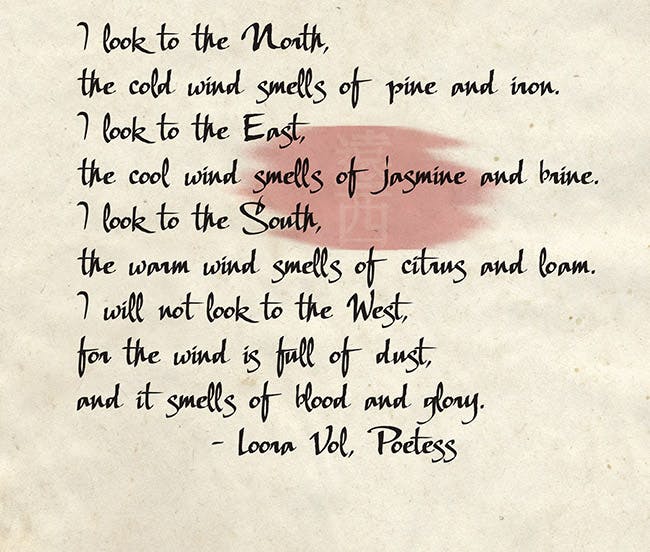 I look to the North,
the cold wind smells of pine and iron.
I look to the East,
the cool wind smells of jasmine and brine.
I look to the South,
the warm wind smells of citrus and loam.
I will not look to the West,
for the wind is full of dust,
and it smells of blood and glory.
- Loora Vol, Poetess
西